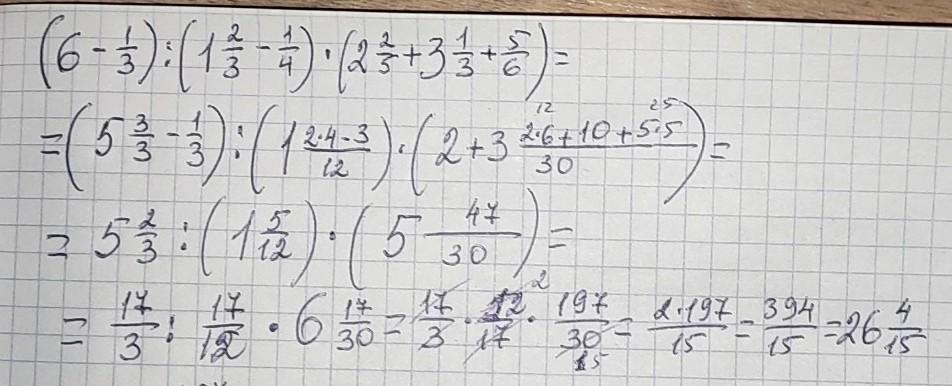 (6 - 1/3) : (1 2/3 - 1/4) · (2 2/5 + 3 1/3 + 5/6) =
= (5 3/3 - 1/3) : (1 2·4-3/12) · (2 + 3 2·6 12 + 10 + 5·5 25/30) =
= 5 2/3 : (1 5/12) · (5 47/30) =
= 17/3 : 17/12 · 6 17/30 = 17/3 · 12 2/17 · 197/30 15 = 2·197/15 = 394/15 = 26 4/15